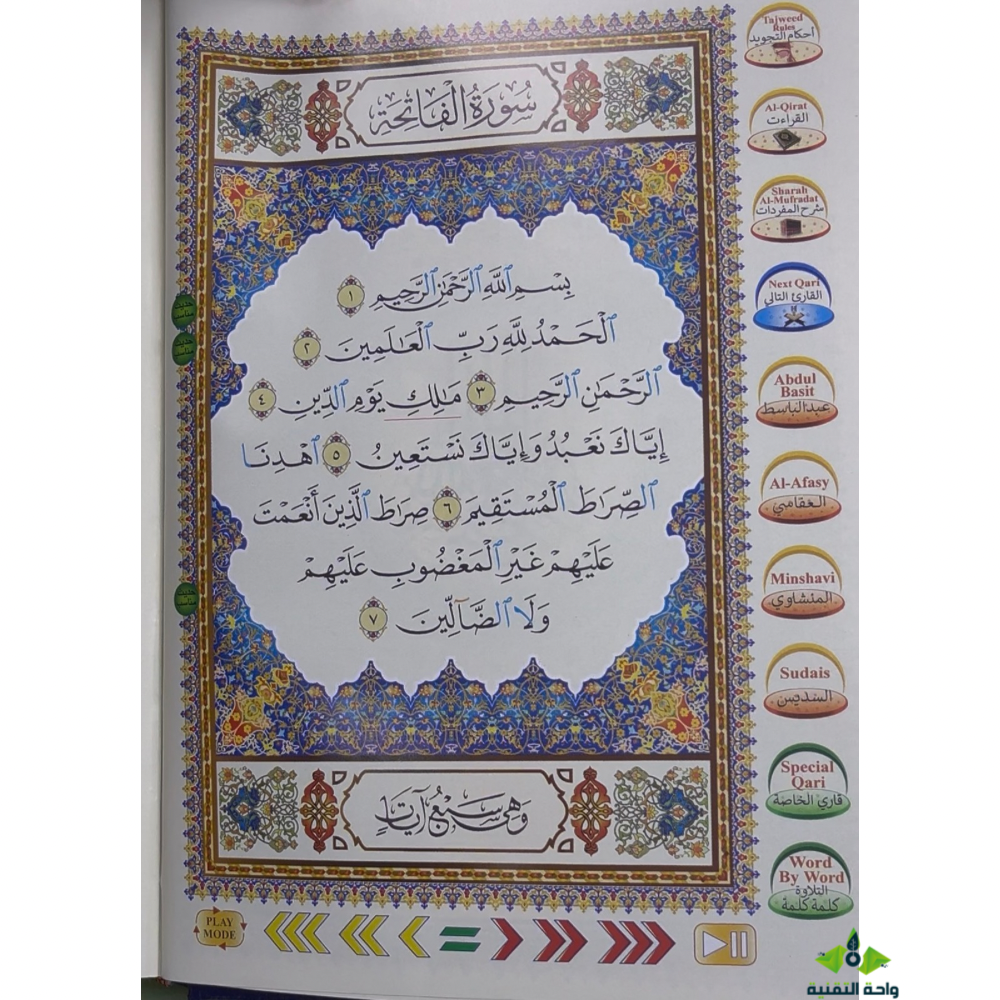 سُورَةُ الْفَاتِحَةِ
بِسْمِ ٱللَّهِ ٱلرَّحْمَٰنِ ٱلرَّحِيمِ ١
ٱلْحَمْدُ لِلَّهِ رَبِّ ٱلْعَٰلَمِينَ ٢
ٱلرَّحْمَٰنِ ٱلرَّحِيمِ ٣ مَٰلِكِ يَوْمِ ٱلدِّينِ ٤
إِيَّاكَ نَعْبُدُ وَإِيَّاكَ نَسْتَعِينُ ٥ ٱهْدِنَا
ٱلصِّرَٰطَ ٱلْمُسْتَقِيمَ ٦ صِرَٰطَ ٱلَّذِينَ أَنْعَمْتَ
عَلَيْهِمْ غَيْرِ ٱلْمَغْضُوبِ عَلَيْهِمْ
وَلَا ٱلضَّآلِّينَ ٧
وَهِيَ سَبْعُ آيَاتٍ
Tajweed
Rules
أحكام التجويد
Al-Qirat
القراءت
Sharah
Al-Mufradat
شرح المفردات
Next Qari
القارئ التالي
Abdul
Basit
عبد الباسط
Al-Afasy
العفاسي
Minshavi
المنشاوي
Sudais
السديس
Special
Qari
قاري الخاصة
Word
By Word
التلاوة
كلمة كلمة
PLAY
MODE
واحة التقنية